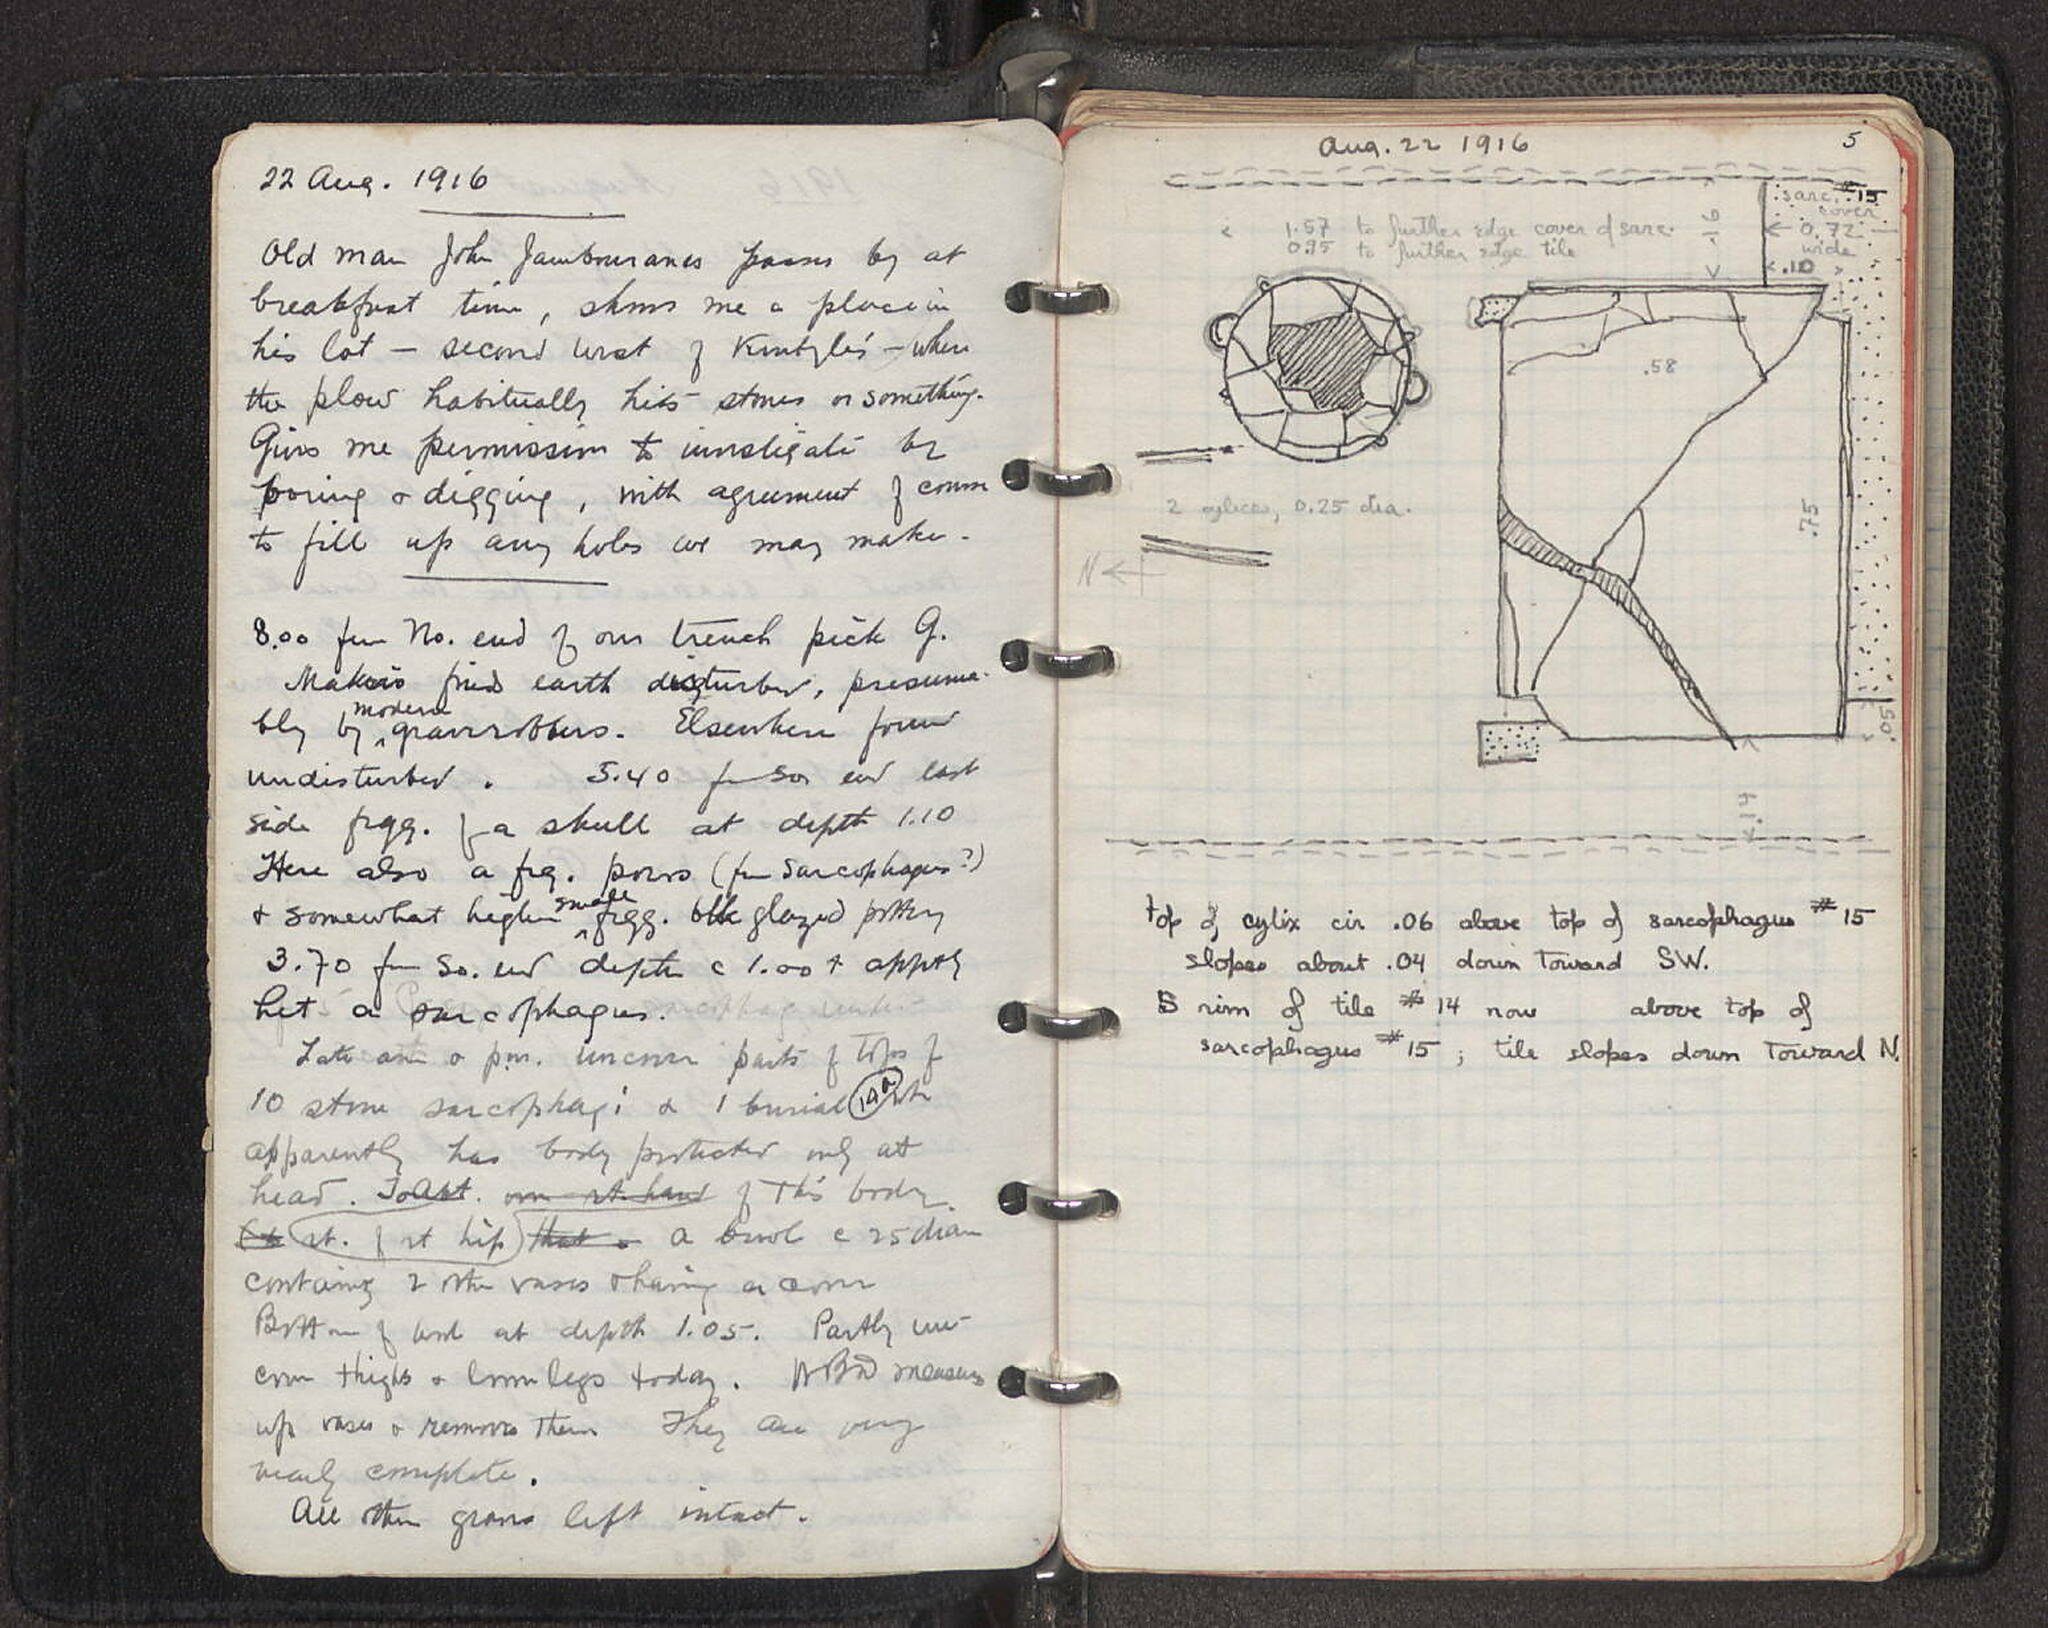 22 Aug. 1916
Old man John Jambouranes passes by at
breakfast time, shows me a place in
his lot — second west of Kintzle's — where
the plow habitually hits stones or something.
Gives me permission to investigate by
boring & digging, with agreement of course
to fill up any holes we may make.
8.00 fm No. end of our trench pick G.
Makris finds earth disturbed, presuma-
bly by modern graverobbers. Elsewhere found
undisturbed. 5.40 fm So end east
side frgg. of a skull at depth 1.10
Here also a frg. poros (fm sarcophagus?)
& somewhat higher small frgg. blk glazed pottery
3.70 fm So. end depth c 1.00 + apptly
hit a sarcophagus.
Late am & p.m. uncover parts of tops of
10 stone sarcophagi & 1 burial 14a wh
apparently has body protected only at
head. To rt. of this body
rt. of rt hip a bowl c 25 diam
containg 2 other vases & having a cover
Bottom of bowl at depth 1.05. Partly un-
cover thighs & lower legs today. WBD measures
up vases & removes them They are very
nearly complete.
All other graves left intact.
Aug. 22 1916
5
sarc. #15
cover
0.72
wide
.10
1.57 to further edge cover of sarc.
0.95 to further edge tile
.19
.58
2 cylices, 0.25 dia.
N
.75
.05
.14
top of cylix cir .06 above top of sarcophagus #15
slopes about .04 down toward SW.
S rim of tile #14 now above top of
sarcophagus #15; tile slopes down toward N.